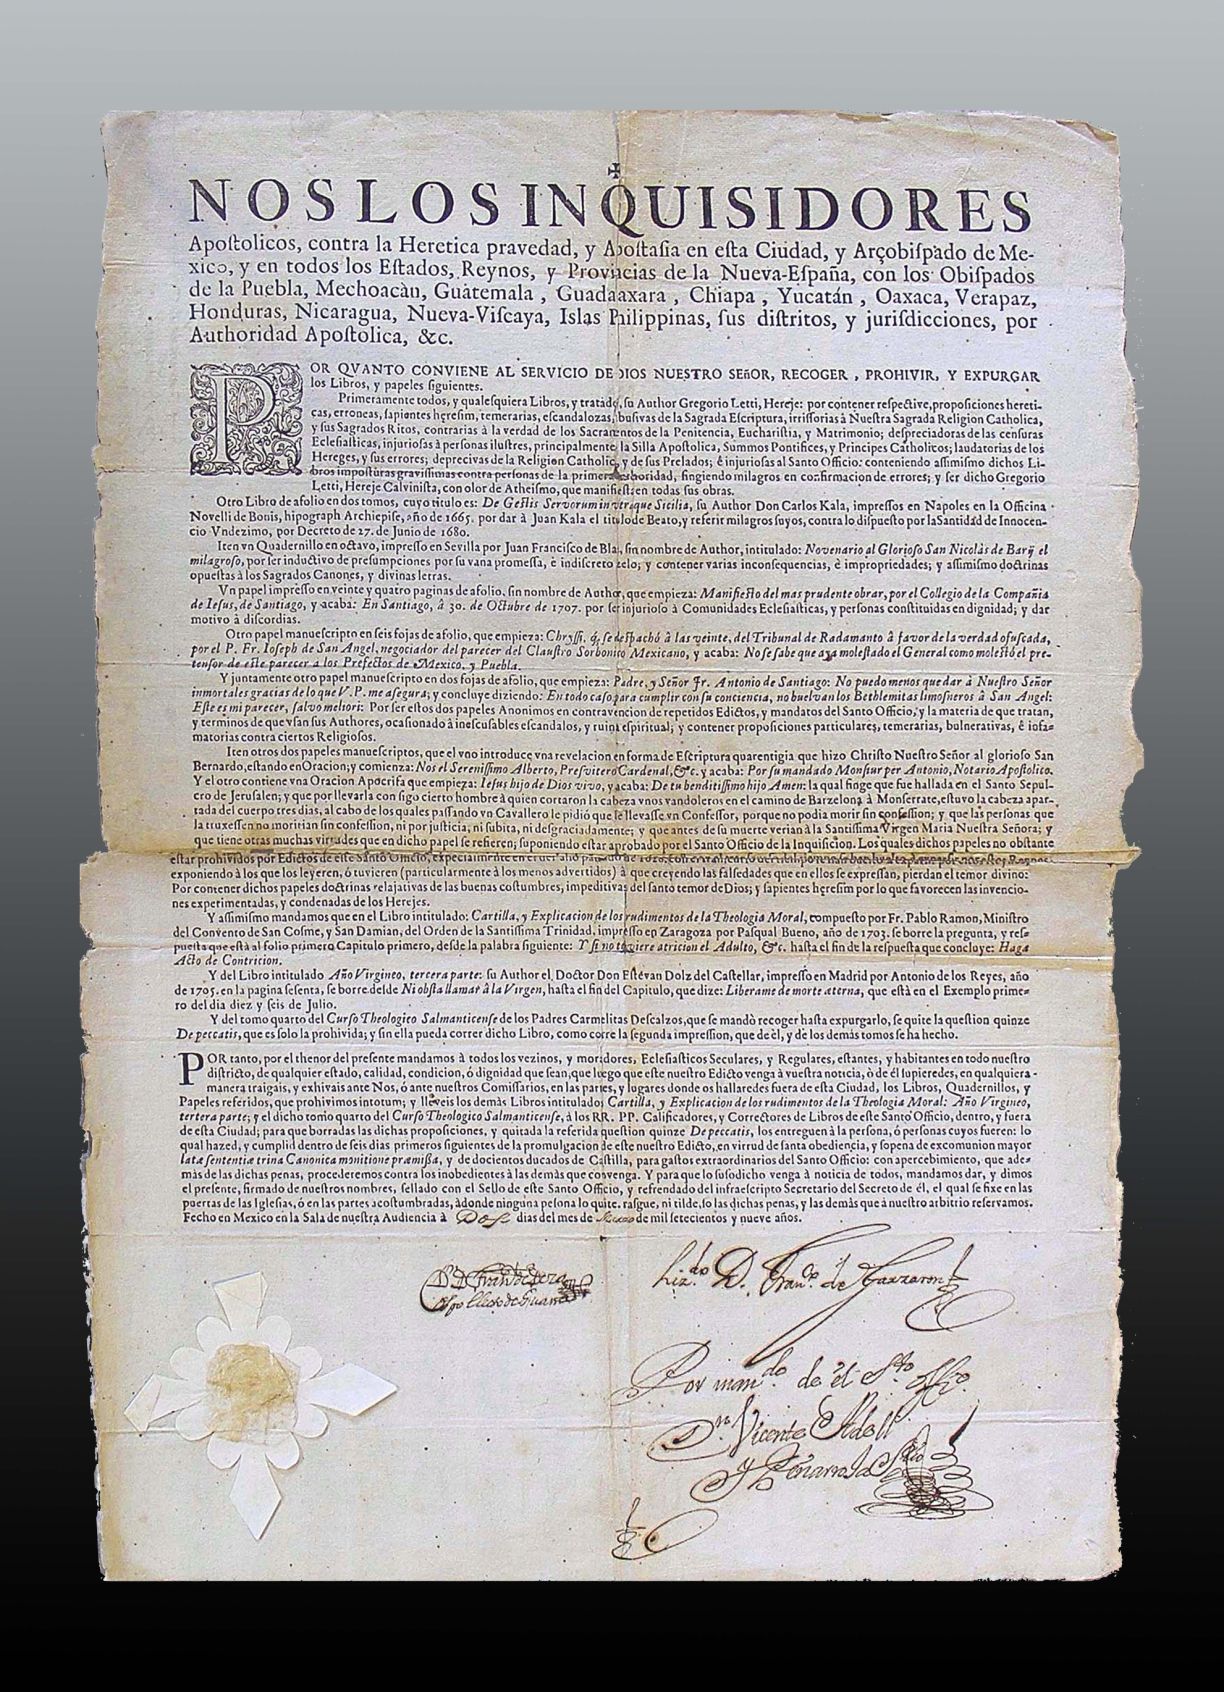 NOS LOS INQUISIDORES
Apostolicos, contra la Heretica pravedad, y Apostasia en esta Ciudad, y Arçobispado de Me-
xico, y en todos los Estados, Reynos, y Provincias de la Nueva-España, con los Obispados
de la Puebla, Mechoacàn, Guatemala, Guadaaxara, Chiapa, Yucatán, Oaxaca, Verapaz,
Honduras, Nicaragua, Nueva-Viscaya, Islas Philippinas, sus distritos, y jurisdicciones, por
Authoridad Apostolica, &c.
POR QVANTO CONVIENE AL SERVICIO DE DIOS NUESTRO SEñOR, RECOGER, PROHIVIR, Y EXPURGAR
los Libros, y papeles siguientes.
Primeramente todos, y qualesquiera Libros, y tratado, su Author Gregorio Letti, Hereje: por contener respective, proposiciones hereti-
cas, erroneas, sapientes heresim, temerarias, escandalozas, abusivas de la Sagrada Escriptura, irrissorias à Nuestra Sagrada Religion Catholica,
y sus Sagrados Ritos, contrarias à la verdad de los Sacramentos de la Penitencia, Eucharistia, y Matrimonio; despreciadoras de las censuras
Eclesiasticas, injuriosas à personas ilustres, principalmente la Silla Apostolica, Summos Pontifices, y Principes Catholicos; laudatorias de los
Hereges, y sus errores; deprecivas de la Religion Catholica, y de sus Prelados; è injuriosas al Santo Officio: conteniendo assimismo dichos Li-
bros imposturas gravissimas contra personas de la primera authoridad, fingiendo milagros en confirmacion de errores; y ser dicho Gregorio
Letti, Hereje Calvinista, con olor de Atheismo, que manifiesta en todas sus obras.
Otro Libro de afolio en dos tomos, cuyo titulo es: De Gestis Servorum in utreque Sicilia, su Author Don Carlos Kala, impressos en Napoles en la Officina
Novelli de Bonis, hipograph Archiepise, año de 1665. por dar à Juan Kala el titulo de Beato, y referir milagros suyos, contra lo dispuesto por la Santidad de Innocen-
cio Vndezimo, por Decreto de 27. de Junio de 1680.
Iten vn Quadernillo en octavo, impresso en Sevilla por Juan Francisco de Blas, sin nombre de Author, intitulado: Novenario al Glorioso San Nicolàs de Barij el
milagroso, por ser inductivo de presumpciones por su vana promessa, è indiscreto zelo; y contener varias inconsequencias, è impropriedades; y assimismo doctrinas
opuestas à los Sagrados Canones, y divinas letras.
Vn papel impresso en veinte y quatro paginas de afolio, sin nombre de Author, que empieza: Manifiesto del mas prudente obrar, por el Collegio de la Compañia
de Iesus, de Santiago, y acaba: En Santiago, à 30. de Octubre de 1707. por ser injurioso à Comunidades Eclesiasticas, y personas constituidas en dignidad; y dar
motivo à discordias.
Otro papel manuescripto en seis fojas de afolio, que empieza: Chryssi. q. se despachó à las veinte, del Tribunal de Radamanto à favor de la verdad ofuscada,
por el P. Fr. Ioseph de San Angel, negociador del parecer del Claustro Sorbonico Mexicano, y acaba: No se sabe que aya molestado el General como molestó el pre-
tensor de este parecer a los Prefectos de Mexico, y Puebla.
Y juntamente otro papel manuescripto en dos fojas de afolio, que empieza: Padre, y Señor Fr. Antonio de Santiago: No puedo menos que dar à Nuestro Señor
inmortales gracias de lo que V. P. me asegura; y concluye diziendo: En todo caso para cumplir con su conciencia, no buelvan los Bethlemitas limosneros à San Angel:
Este es mi parecer, salvo meliori: Por ser estos dos papeles Anonimos en contravencion de repetidos Edictos, y mandatos del Santo Officio, y la materia de que tratan,
y terminos de que vsan sus Authores, ocasionado à inescusables escandalos, y ruina espiritual, y contener proposiciones particulares, temerarias, bulnerativas, è infa-
matorias contra ciertos Religiosos.
Iten otros dos papeles manuescriptos, que el vno introduce vna revelacion en forma de Escriptura quarentigia que hizo Christo Nuestro Señor al glorioso San
Bernardo, estando en Oracion; y comienza: Nos el Serenissimo Alberto, Presvitero Cardenal, &c. y acaba: Por su mandado Monsiur per Antonio, Notario Apostolico.
Y el otro contiene vna Oracion Apocrifa que empieza: Iesus hijo de Dios vivo, y acaba: De tu benditissimo hijo Amen: la qual finge que fue hallada en el Santo Sepul-
cro de Jerusalen; y que por llevarla con sigo cierto hombre à quien cortaron la cabeza vnos vandoleros en el camino de Barzelona à Monserrate, estuvo la cabeza apar-
tada del cuerpo tres dias, al cabo de los quales passando vn Cavallero le pidiò que le llevasse vn Confessor, porque no podia morir sin confession; y que las personas que
la truxessen no moririan sin confession, ni por justicia, ni subita, ni desgraciadamente; y que antes de su muerte verian à la Santissima Virgen Maria Nuestra Señora; y
que tiene otras muchas virtudes que en dicho papel se refieren; suponiendo estar aprobado por el Santo Officio de la Inquisicion. Los quales dichos papeles no obstante
estar prohividos por Edictos de este Santo Officio,
exponiendo à los que los leyeren, ò tuvieren (particularmente à los menos advertidos) à que creyendo las falsedades que en ellos se expressan, pierdan el temor divino:
Por contener dichos papeles doctrinas relajativas de las buenas costumbres, impeditivas del santo temor de Dios; y sapientes heresim por lo que favorecen las invencio-
nes experimentadas, y condenadas de los Herejes.
Y assimismo mandamos que en el Libro intitulado: Cartilla, y Explicacion de los rudimentos de la Theologia Moral, compuesto por Fr. Pablo Ramon, Ministro
del Convento de San Cosme, y San Damian, del Orden de la Santissima Trinidad, impresso en Zaragoza por Pasqual Bueno, año de 1703. se borre la pregunta, y res-
puesta que està al folio primero Capitulo primero, desde la palabra siguiente: Y si no tuviere atricion el Adulto, &c. hasta el fin de la respuesta que concluye: Haga
Acto de Contricion.
Y del Libro intitulado Año Virgineo, tercera parte: su Author el Doctor Don Estévan Dolz del Castellar, impresso en Madrid por Antonio de los Reyes, año
de 1705. en la pagina sesenta, se borre desde Ni obsta llamar à la Virgen, hasta el fin del Capitulo, que dize: Liberame de morte æterna, que està en el Exemplo prime-
ro del dia diez y seis de Julio.
Y del tomo quarto del Curso Theologico Salmanticense de los Padres Carmelitas Descalzos, que se mandò recoger hasta expurgarlo, se quite la question quinze
De peccatis, que es solo la prohivida; y sin ella pueda correr dicho Libro, como corre la segunda impression, que de èl, y de los demàs tomos se ha hecho.
POR tanto, por el thenor del presente mandamos à todos los vezinos, y moridores, Eclesiasticos Seculares, y Regulares, estantes, y habitantes en todo nuestro
districto, de qualquier estado, calidad, condicion, ò dignidad que sean, que luego que este nuestro Edicto venga à vuestra noticia, ò de èl supieredes, en qualquiera
manera traigais, y exhivais ante Nos, ò ante nuestros Comissarios, en las partes, y lugares donde os hallaredes fuera de esta Ciudad, los Libros, Quadernillos, y
Papeles referidos, que prohivimos in totum; y lleveis los demàs Libros intitulados Cartilla, y Explicacion de los rudimentos de la Theologia Moral: Año Virgineo,
tertera parte; y el dicho tomo quarto del Curso Theologico Salmanticense, à los RR. PP. Calificadores, y Correctores de Libros de este Santo Officio, dentro, y fuera
de esta Ciudad; para que borradas las dichas proposiciones, y quitada la referida question quinze De peccatis, los entreguen à la persona, ò personas cuyos fueren: lo
qual hazed, y cumplid dentro de seis dias primeros siguientes de la promulgacion de este nuestro Edicto, en virud de santa obediencia, y sopena de excomunion mayor
lata sententiæ trina Canonica monitione præmissa, y de docientos ducados de Castilla, para gastos extraordinarios del Santo Officio: con apercebimiento, que ade-
màs de las dichas penas, procederemos contra los inobedientes à las demàs que convenga. Y para que lo susodicho venga à noticia de todos, mandamos dar, y dimos
el presente, firmado de nuestros nombres, sellado con el Sello de este Santo Officio, y refrendado del infraescripto Secretario del Secreto de èl, el qual se fixe en las
puertas de las Iglesias, ò en las partes acostumbradas, à donde ninguna pesona lo quite, rasgue, ni tilde, so las dichas penas, y las demàs que à nuestro arbitrio reservamos.
Fecho en Mexico en la Sala de nuestra Audiencia à Dose dias del mes de de mil setecientos y nueve años.
Lizdo D. Frano. de Garzaron
Por mando. de el Sto. offio.
Dn. Vicente Adell
y Peñarroja Srio